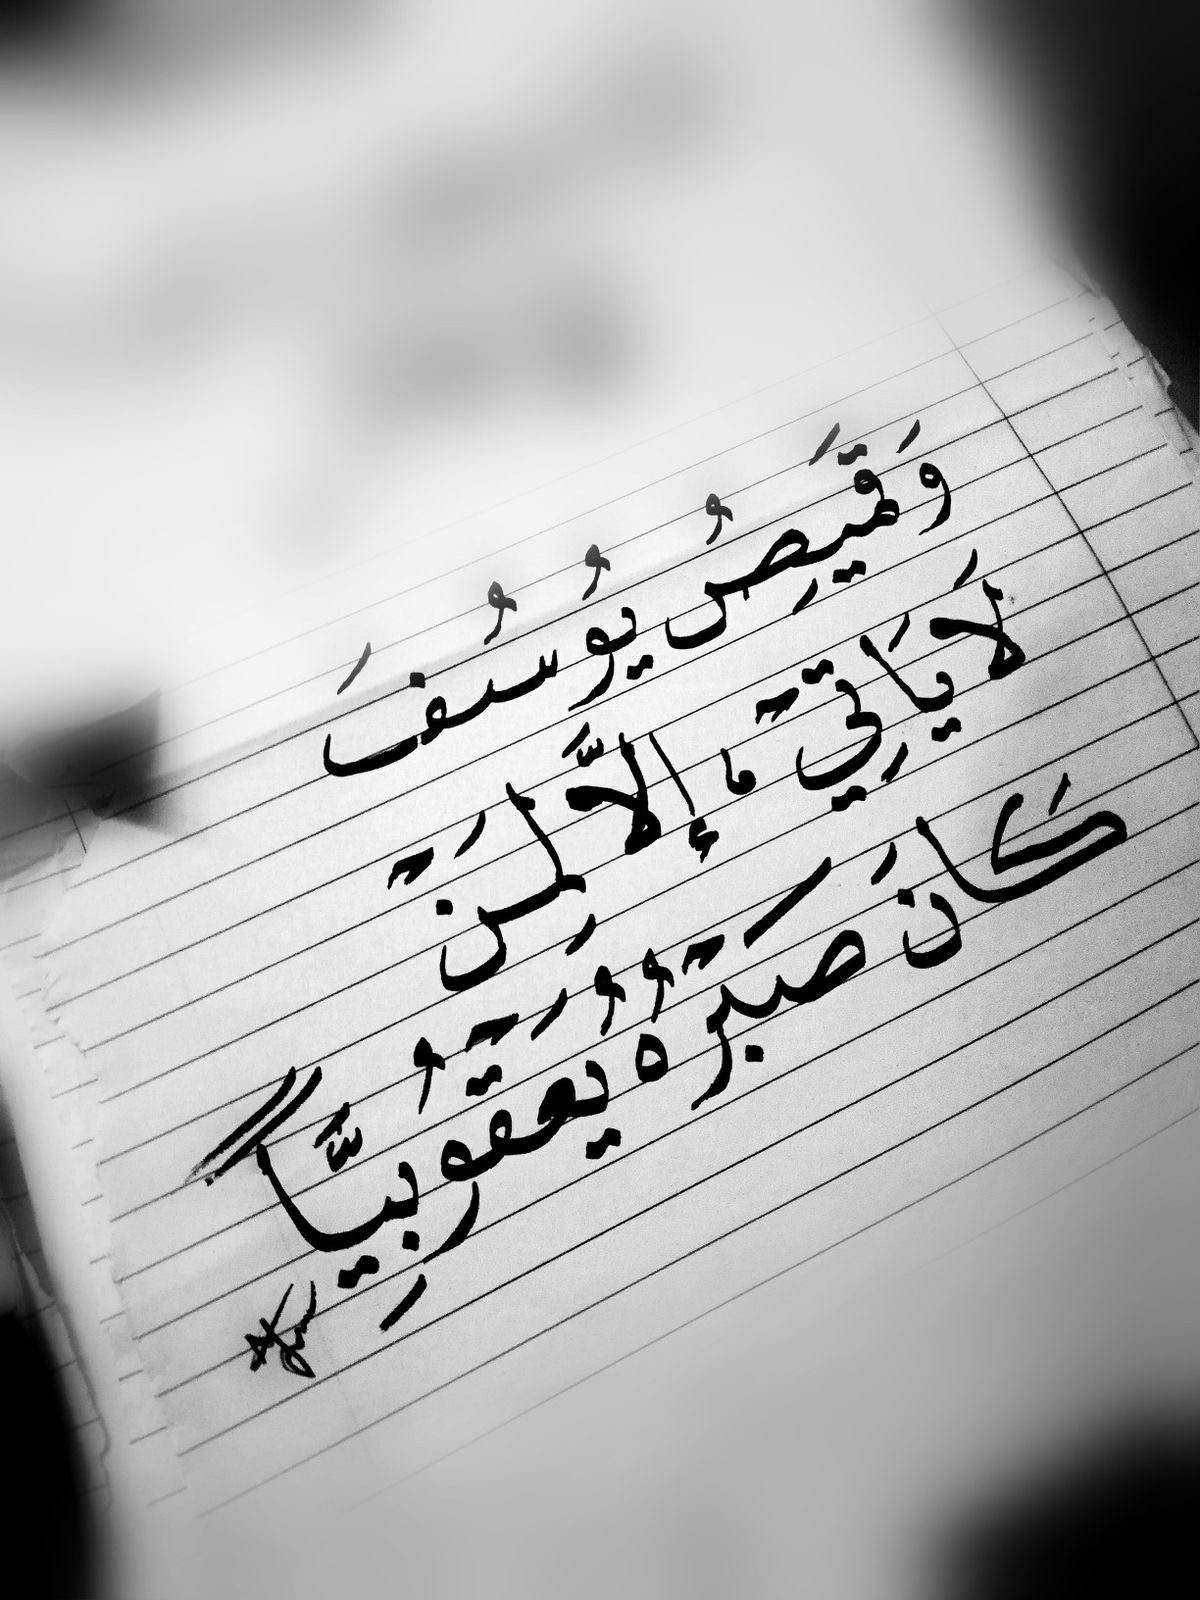 وَقَمِيصُ يُوسُفَ
لَا يَاتِي إِلَّا لِمَنْ
كَانَ صَبْرُهُ يَعْقُوبِيًّا